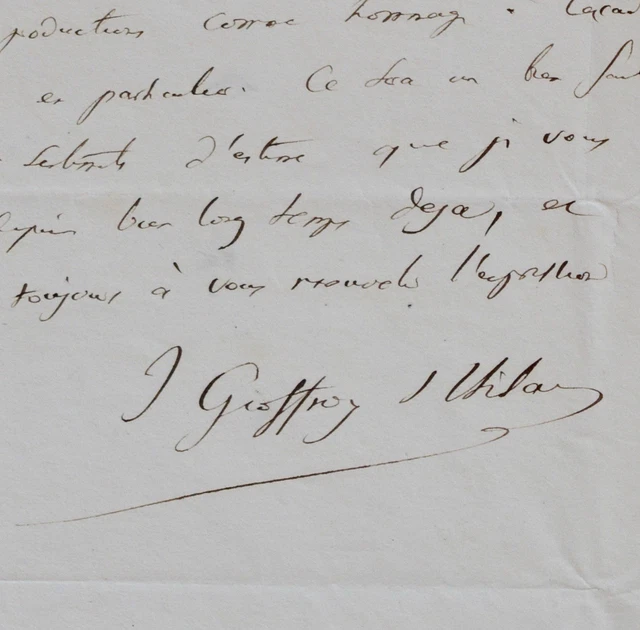 productions comme hommage à l'acad
en particulier. Ce sera un bien fai
sentiments d'estime que j vous
depuis bien long temps deja, et
toujours à vous renouveler l'expression
I Geoffroy St Hilaire